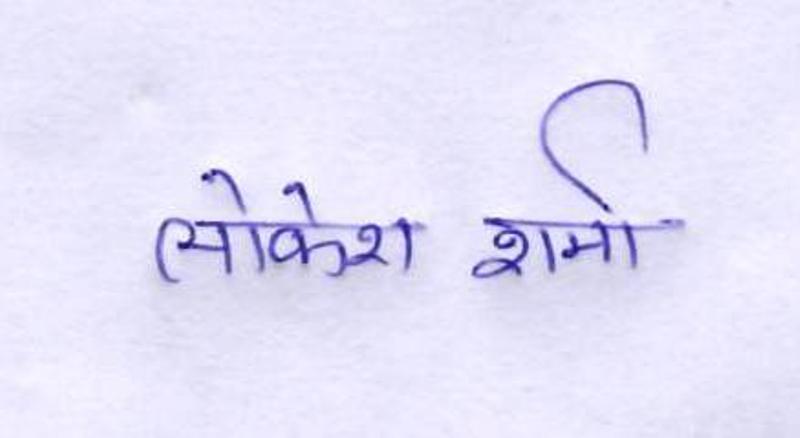 लोकेश शर्मा